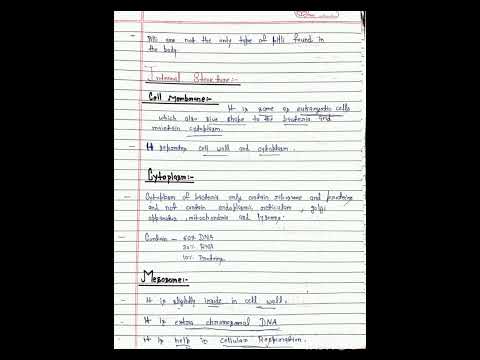 Pilli are not the only type of pilli found in
the body
Internal Structure:-
Cell Membrane:-
It is same as eukaryotic cells
which also give shape to the bacteria and
maintain cytoplasm.
It separates cell wall and cytoplasm.
Cytoplasm:-
Cytoplasm of bacteria only contain ribosome and proteins
and not contain endoplasmic reticulum, golgi
apparatus, mitochondria and lysosome.
Contain - 60% DNA
30% RNA
10% Proteins
Mesosome:-
It is slightly inside in cell wall.
It is extra chromosomal DNA
It is help in cellular Respiration.